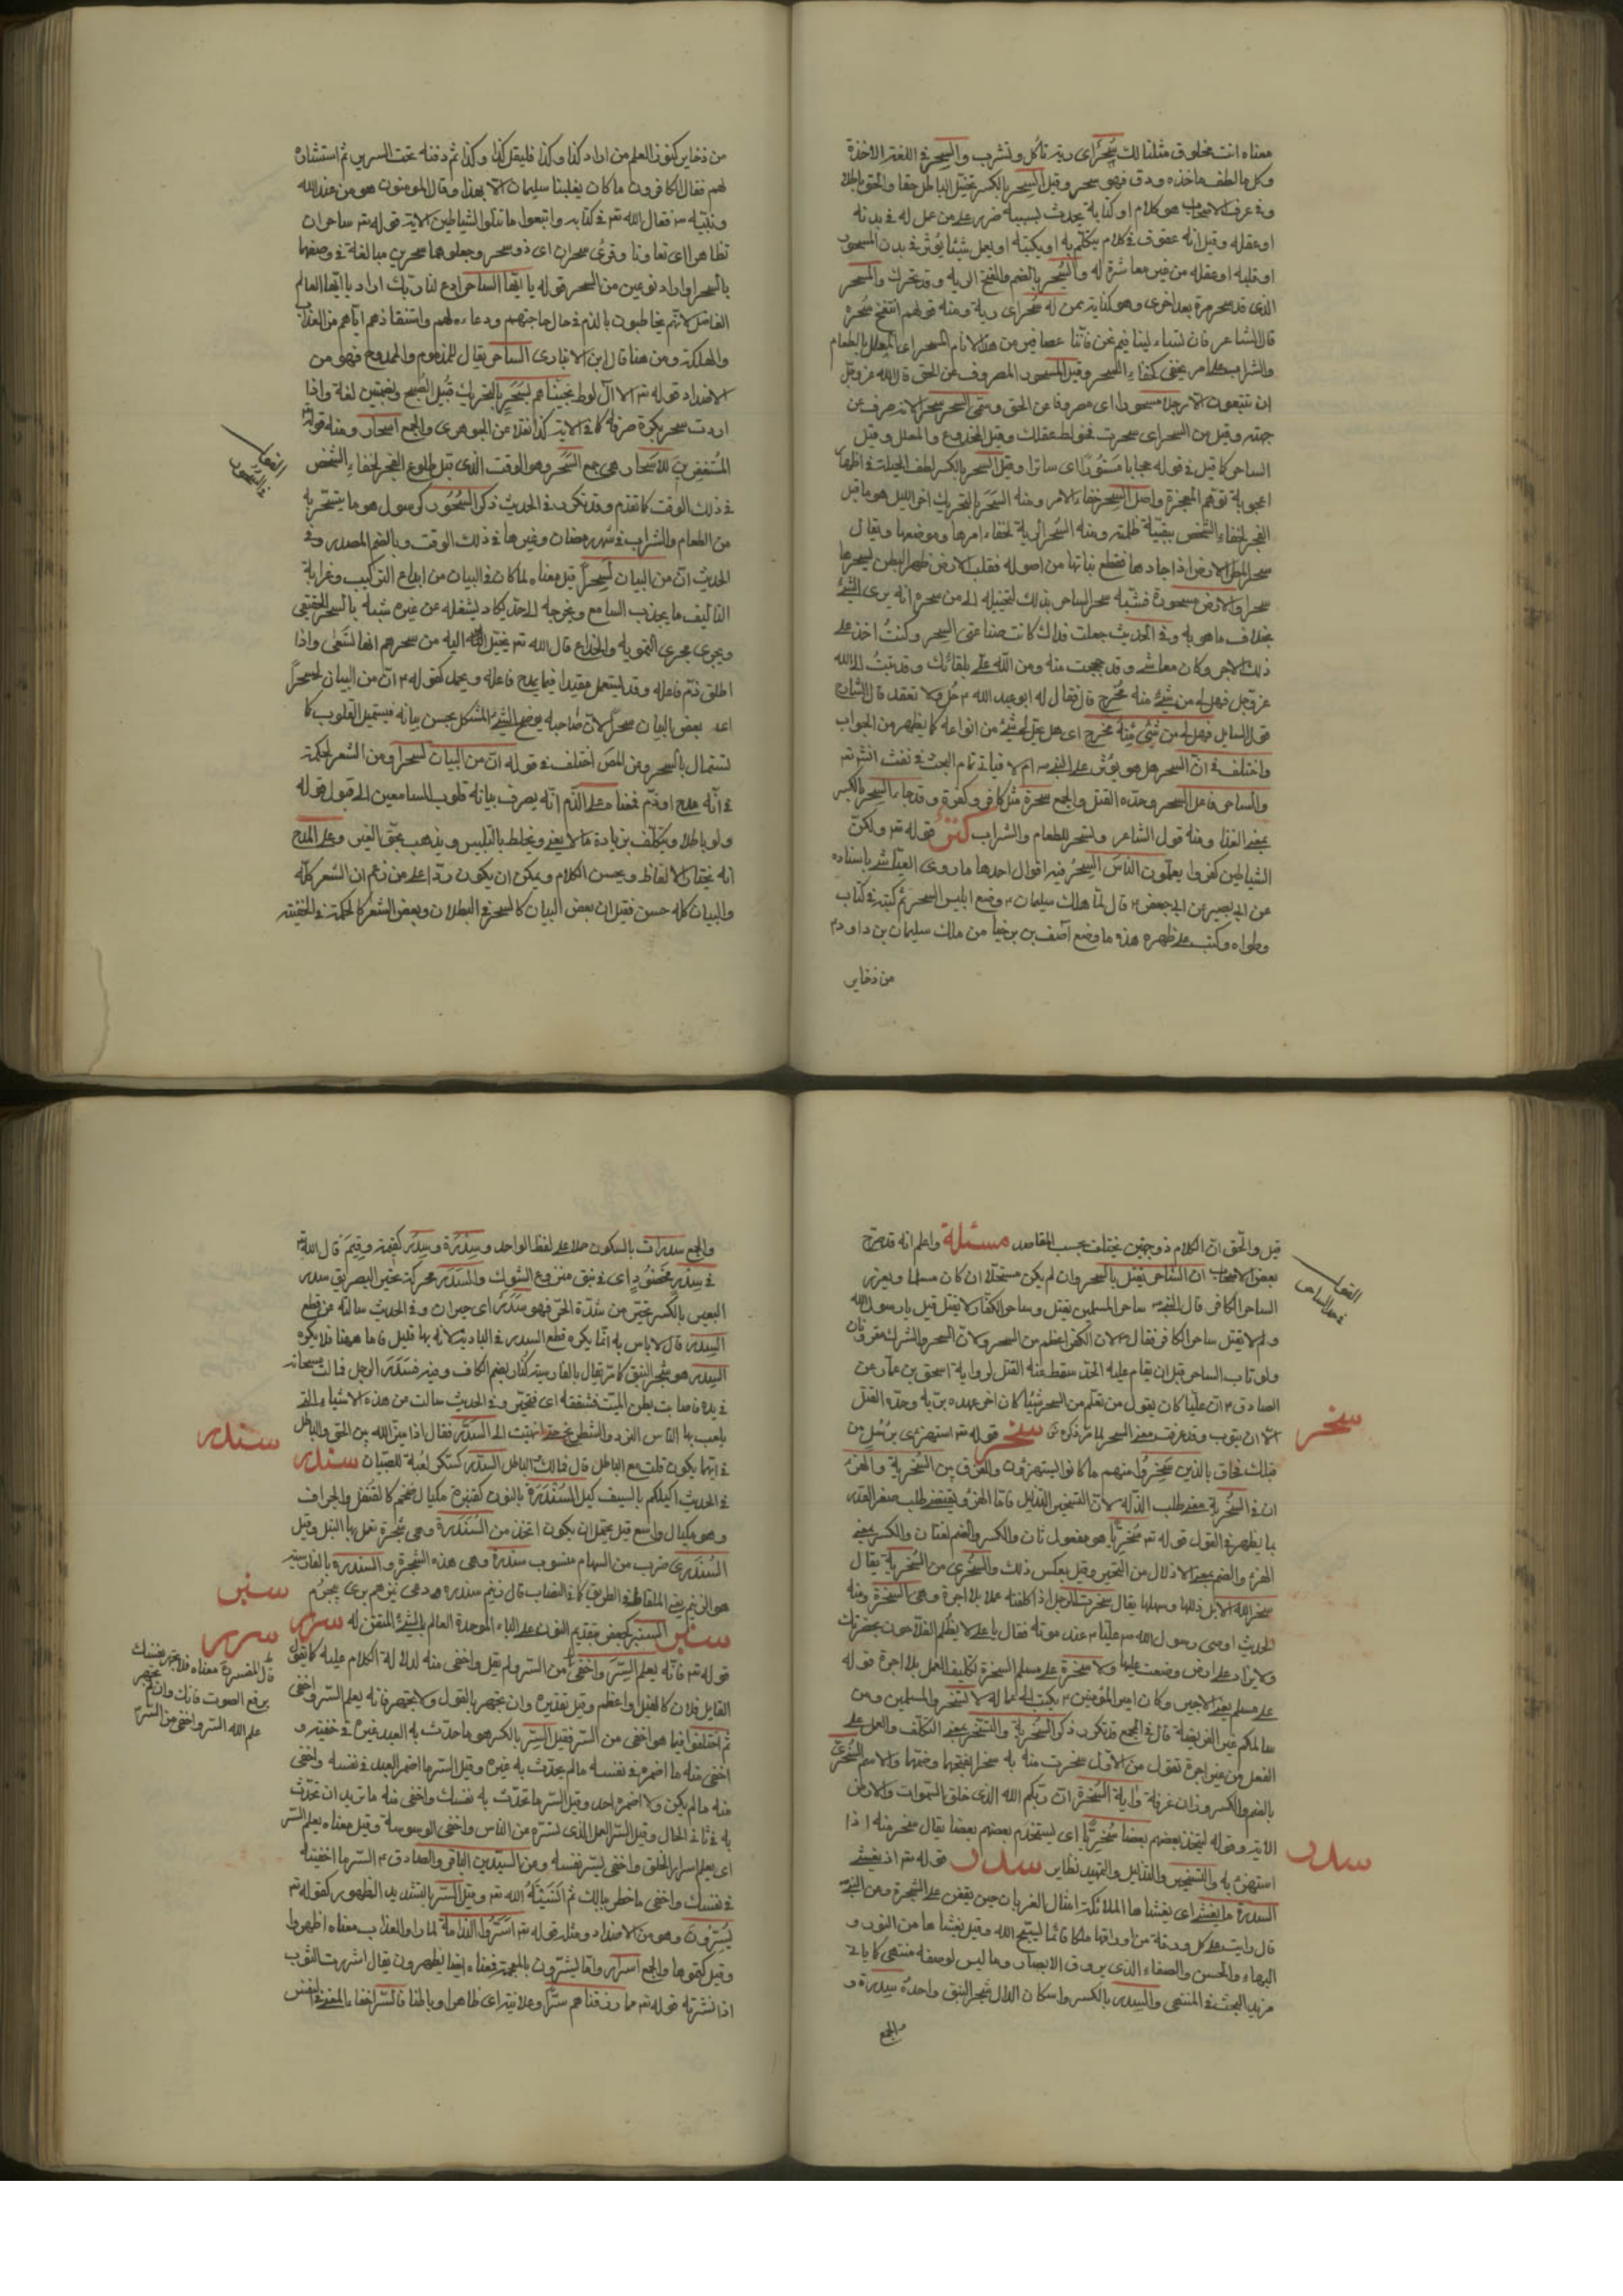 معناه انت مخلوق مثلنا لك سُحْر اى رية تأكل وتشرب والسِحر فى اللغة الاخذة
وكل ما لطف مأخذه ودق فهو سحر وقيل السِحر بالكسر تخيّل الباطل حقا والحق باطلا
وفى عرف الاصحاب هو كلام او كتابة يحدث بسببه ضرر على من عمل له فى بدنه
او عقله وقيل انه عقود فى كلام يتكلم به او يكتبه او يعمل شيئا يؤثر فى بدن المسحور
او قلبه او عقله من غير معاشرة له والسُحر بالضم والفتح الرية وقد تحرك والمسحر
الذى قد سحر مرة بعد اخرى وهو كناية عمن له سُحْر اى رية ومنه قولهم انتفخ سُحره
قال الشاعر فان تسئلينا فيم نحن فاننا عصافير من هذا الانام المسحر اى المعلل بالطعام
والشراب على امر يخفى كخفاء السحر وقيل المسحور المصروف عن الحق قال الله عز وجل
ان تتبعون الا رجلا مسحورا اى مصروفا عن الحق وسمى السحر سحرا لانه صرف عن
جهته وقيل من السحر اى سحرت فخولط عقلك وقيل المخدوع والمعلل وقيل
الساحر كما قيل فى قوله حجابا مَسْتُورًا اى ساترا وقيل السحر بالكسر لطف الحيلة فى اظهار
اعجوبة توهم المعجزة واصل السِحر خفاء الامر ومنه السَحَر بالتحريك اخر الليل هو ما قبل
الفجر لخفاء الشخص ببقيّة ظلمته ومنه السُحر الرية لخفاء امرها وموضعها ويقال
سحر المطر الارض اذا جادها فقطع نباتها من اصوله فقلب الارض ظهر البطن ليسحرها
سحرا والارض مسحورة فشبّه سحر الساحر بذلك لتخييله الى من سحره انه يرى الشئ
بخلاف ما هو به وفى الحديث جعلت فداك كانت صناعتى السحر وكنتُ اخذ على
ذلك الاجر وكان معاشى وقد حججت منه ومن الله على بلقائك وقد تبتُ الى الله
عز وجل فهل لى من شئ منه مُخْرِج قال فقال له ابو عبد الله ع حُل ولا تعقد قال الشارح
قول السائل فهل لى من شَئٍ مِنْهُ مُخْرِج اى هل يحل لى شئ من انواعه كما يظهر من الجواب
واختلف فى ان السحر هل هو يؤثر على النبى ص ام لا فياتى تمام البحث فى نفث انش تع
والساحر فاعل السحر وحدّه القتل والجمع سحرة مثل كافر وكفرة وقد جاء السِحر بالكسر
بمعنى الغذا ومنه قول الشاعر ونسحر للطعام والشراب قوله تع ولكنّ
الشياطين كفروا يعلّمون الناسَ السِحرَ فيه اقوال احدها ما روى العيّاشى باسناده
عن ابى بصير عن ابى جعفر ع قال لما هلك سليمان ع وضع ابليس السحر ثم كتبه فى كتاب
وطواه وكتب على ظهره هذه ما وضع اصف بن برخيا من ملك سليمان بن داود ع
من ذخاير
من ذخاير كنوز العلم من اراد كذا وكذا فليقل كذا وكذا ثم دفنه تحت السرير ثم استشاره
لهم فقال الكافرون ما كان يغلبنا سليمان الا بهذا وقال المومنون هو من عند الله
ونبيّه ص فقال الله تع فى كتابه واتبعوا ما تتلوا الشياطين الاية قوله تع ساحران
تظاهرا اى تعاونا وقرئ سحران اى ذو سحر وجعلوهما سحرين مبالغة فى وصفهما
بالسحر او اراد نوعين من السحر قوله يا ايّها الساحر ادع لنا ربك اراد يا ايّها العالم
الفاضل لانهم يخاطبون بالذم فى حال حاجتهم ودعاءه لهم واستنقاذهم اياهم من العذاب
والهلكة ومن هنا قال ابن الانبارى الساحر يقال للمذموم والممدوح فهو من
الاضداد قوله تع الا آل لوط نجيناهم بِسَحَرٍ بالتحريك قبيل الصُبح وبضمتين لغة واذا
اردت سحر بكرة صرفته كما فى الاية كذا نقلا عن الجوهرى والجمع اسحار ومنه قوله تع
المُستغفِرينَ بالاسحار هى جمع السَّحَر وهو الوقت الذى قبل طلوع الفجر لخفاء الشخص
فى ذلك الوقت كما تقدم وقد تكرر فى الحديث ذكر السُّحُور كرسول هو ما يتسحّر به
من الطعام والشراب فى شهر رمضان وغيرها فى ذلك الوقت وبالضم المصدر وفى
الحديث انّ من البيان لَسِحْراً قيل معناه لما كان فى البيان من ابداع التركيب وغرابة
التاليف ما يجذب السامع ويخرجه الى حد يكاد يشغله عن غيره شبه بالسحر الحقيقى
ويجرى مجرى التمويه والخداع قال الله تع يخيّل اليه من سحرهم انها تَسْعى واذا
اطلق ذمّ فاعله وقد يستعمل مقيدا فيما يمدح فاعله ويحمد كقوله ع انّ من البيان لسحراً
اى بعض البيان سحرًا لان صاحبه يوضح الشئ المشكل بحسن بيانه فيستميل القلوب كما
تستمال بالسحر وعن المض اختلف فى قوله انّ من البيان لسحرا ومن الشعر لحكمة
فى انه مدح او ذم فمعناه على الذم انه يصرف ببيانه قلوب السامعين الى قبول قوله
ولو باطلا ويتكلّف بزيادة ما لا يعنى ويخلط بالتلبيس ويذهب بحق الغير وعلى المدح
انه يختار الالفاظ ويحسن الكلام ويمكن ان يكون ردّا على من زعم ان الشعر كله
والبيان كله حسن فقيل ان بعض البيان كالسحر فى البطلان وبعض الشعر كالحكمة فى الحقيقة
قيل والحق ان الكلام ذو وجهين يختلف بحسب المقاصد مسئلة واعلم انه قد صرح
بعض الاصحاب ان الساحر يقتل بالسحر وان لم يكن مستحلّا ان كان مسلما ويعزر
الساحر الكافر قال النبى ص ساحر المسلمين يقتل وساحر الكفار لا يقتل قيل يا رسول الله
ولم لا يقتل ساحر الكافر فقال ع لان الكفر اعظم من السحر ولان السحر والشرك مقرونان
ولو تاب الساحر قبل ان يقام عليه الحد سقط عنه القتل لرواية اسحق بن عمار عن
الصادق ع ان عليّا كان يقول من تعلم من السحر شيئا كان اخر عهده بربه وحدّه القتل
الا ان يتوب وقد عرفت معنى السحر لما مر ذكره سخر قوله تع استهزئ برُسُلٍ من
قبلك فحاق بالذين سَخِرُوا منهم ما كانوا يستهزؤن والفرق بين السُخرية والهزء
ان فى السُخرية معنى طلب الذلّة لان التسخير التذليل فامّا الهزء فيقتضى طلب صغر القدر
بما يظهر فى القول قوله تع سُخريّا هو مفعول ثان والكسر والضم لغتان والكسر بمعنى
الهزء والضم بمعنى الاذلال من التسخير وقيل بعكس ذلك والسُخْرى من السُخرية يقال
سخّر الله الابل ذللها وسهلها يقال سخرت الرجل اذا كلفته عملا بلا اجرة وهى السُخرة ومنه
الحديث اوصى رسول الله ص عليّا ع عند موته فقال يا على لا يظلم الفلّاحون بحضرتك
ولا يزاد على ارض وضعت عليها ولا سخرة على مسلم السخرة تكليف العمل بلا اجرة قوله
على مسلم يعنى الاجير وكان امير المؤمنين ع يكتب الى عماله لا تسخر والمسلمين ومن
سالكم غير الفريضة قال فى المجمع قد تكرر ذكر السُخرية والتسخير بمعنى التكلف والعمل على
الفعل من غير اجرة تقول من الاول سخرت منه به سخرا بفتحها وضمها والاسم السُخرىّ
بالضم والكسر وزان غرفة واية السُخرة ان ربكم الله الذى خلق السموات والارض
الاية وقوله ليتخذ بعضهم بعضا سُخريّا اى ليستخدم بعضهم بعضا يقال سخر منه اذا
استهزء به والتسخير والتذليل والتمهيد نظاير سدر قوله تع اذ يغشى
السدرة ما يغشى اى يغشاها الملائكة امثال الغربان حين يقعن على الشجرة وعن النبى ص
قال رايت على كل ورقة من اوراقها ملكا قائما يسبّح الله وقيل يغشاها من النور و
البهاء والحسن والصفاء الذى يروق الابصار وما ليس لوصفه منتهى كما ياتى
مزيد البحث فى المنتهى والسِدر بالكسر واسكان الدال شجر النبق واحده سِدرة و
الجمع
سخر
سدر
والجمع سدرات بالسكون حملا على لفظ الواحد وسِدَرة وسِدَر كقيمة وقِيَم قال الله تع
فى سِدْرٍ مَخْضُودٍ اى فى نبق منزوع الشوك والسَدَر محركة تحيّر البصر يق سدر
البعير بالكسر تحيّر من شدة الحرّ فهو سَدِرٌ اى حيران وفى الحديث سالته عن قطع
السِدر قال لا باس به انما يكره قطع السدر فى البادية لانه بها قليل فاما ههنا فلا يكره
السِدر هو شجر النبق كما مر يقال بالفارسية كنار بضم الكاف وفيه فسدر الرجل فمالت مسحاته
فى يده فاصابت بطن الميت فشقته اى فتحيّر وفى الحديث سالت من هذه الاشياء التى
يلعب بها الناس النرد والشطرنج حتى انتهيت الى السدّر فقال اذا ميّز الله بين الحق والباطل
فى ايهما يكون قلت مع الباطل قال فمالك والباطل السدّر كسكر لُعبة للصبيان سندر
فى الحديث اكيلكم بالسيف كيل السَّنْدَرة بالنون كقنبرة مكيال ضخم كالقنقل والجراف
وهو مكيال واسع قيل يحتمل ان يكون اتخذ من السَندرة وهى شجرة تعمل بها النبل وقيل
السَندرى ضرب من السهام منسوب سندرة وهى هذه الشجرة والسندرة بالفارسية
سنبر السنبر كجعفر بتقديم النون على الباء الموحدة العالم بالشئ المتقن له سرر
قوله تع فانّه يعلم السِرَّ واَخْفى من السر ولم يقل واخفى منه لدلالة الكلام عليه كما يقول
القايل فلان كالفيل او اعظم وقيل تقديره وان تجهر بالقول ولا يجهر فانه يعلم السر واخفى
ثم اختلفوا فيما هو اخفى من السر فقيل السِر بالكسر هو ما حدّث به العبد غيره فى خفية و
اخفى منه ما اضمره فى نفسه ما لم يحدّث به غيره وقيل السر ما اضمر العبد فى نفسه واخفى
منه ما لم يكن ولا اضمره احد وقيل السر ما تحدّث به نفسك واخفى منه ما تريد ان تحدّث
به فى ثانى الحال وقيل السر العمل الذى تستره عن الناس واخفى الوسوسة وقيل معناه يعلم السر
اى يعلم اسرار الخلق واخفى لسر نفسه وعن السيّدين الباقر والصادق ع السر ما اخفيته
فى نفسك واخفى ما خطر ببالك ثم اُنْسيتَهُ الله تع وقيل السر بالتشديد الظهور كقوله تع
يُسِرّونَ وهو من الاضداد ومثله قوله تع اَسَرُّوا الندامة لما راوا العذاب معناه اظهروا
وقيل كتموها والجمع اسرار وامّا يشرّون بالمعجمة فمعناه ايضا يظهرون يقال اشررت الثوب
اذا نشرته قوله تع مما رزقناهم سرّا وعلانية اى ظاهرا وباطنا فالسر اخفاء المعنى فى النفس
سندر
سنبر
سرر
برفع الصوت فانك وان لم تجهر
علم الله السر واخفى من السر